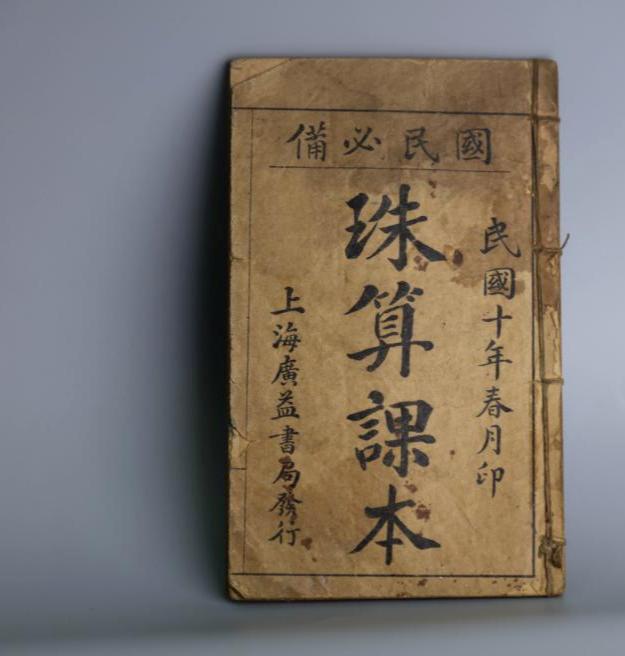 國民必備
民國十年春月印
珠算課本
上海廣益書局發行